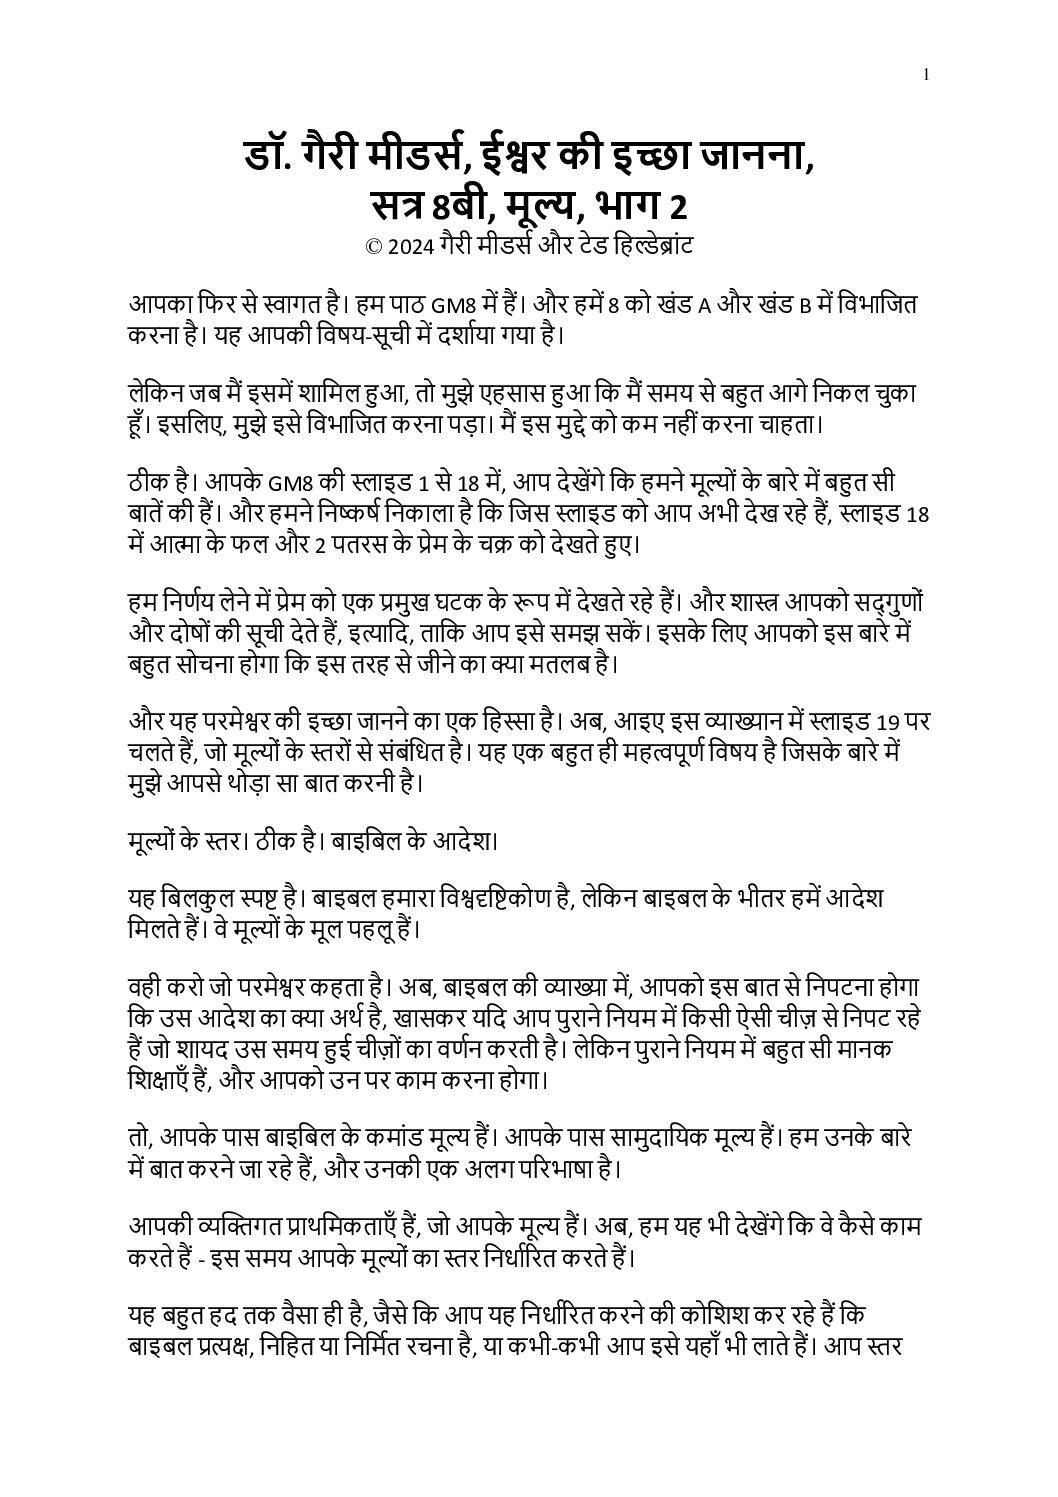 1
डॉ. गैरी मीडर्स, ईश्वर की इच्छा जानना,
सत्र 8बी, मूल्य, भाग 2
© 2024 गैरी मीडर्स और टेड हिल्डेब्रांट
आपका फिर से स्वागत है। हम पाठ GM8 में हैं। और हमें 8 को खंड A और खंड B में विभाजित
करना है। यह आपकी विषय-सूची में दर्शाया गया है।
लेकिन जब मैं इसमें शामिल हुआ, तो मुझे एहसास हुआ कि मैं समय से बहुत आगे निकल चुका
हूँ। इसलिए, मुझे इसे विभाजित करना पड़ा। मैं इस मुद्दे को कम नहीं करना चाहता।
ठीक है। आपके GM8 की स्लाइड 1 से 18 में, आप देखेंगे कि हमने मूल्यों के बारे में बहुत सी
बातें की हैं। और हमने निष्कर्ष निकाला है कि जिस स्लाइड को आप अभी देख रहे हैं, स्लाइड 18
में आत्मा के फल और 2 पतरस के प्रेम के चक्र को देखते हुए।
हम निर्णय लेने में प्रेम को एक प्रमुख घटक के रूप में देखते रहे हैं। और शास्त्र आपको सद्गुणों
और दोषों की सूची देते हैं, इत्यादि, ताकि आप इसे समझ सकें। इसके लिए आपको इस बारे में
बहुत सोचना होगा कि इस तरह से जीने का क्या मतलब है।
और यह परमेश्वर की इच्छा जानने का एक हिस्सा है। अब, आइए इस व्याख्यान में स्लाइड 19 पर
चलते हैं, जो मूल्यों के स्तरों से संबंधित है। यह एक बहुत ही महत्वपूर्ण विषय है जिसके बारे में
मुझे आपसे थोड़ा सा बात करनी है।
मूल्यों के स्तर। ठीक है। बाइबिल के आदेश।
यह बिलकुल स्पष्ट है। बाइबल हमारा विश्वदृष्टिकोण है, लेकिन बाइबल के भीतर हमें आदेश
मिलते हैं। वे मूल्यों के मूल पहलू हैं।
वही करो जो परमेश्वर कहता है। अब, बाइबल की व्याख्या में, आपको इस बात से निपटना होगा
कि उस आदेश का क्या अर्थ है, खासकर यदि आप पुराने नियम में किसी ऐसी चीज़ से निपट रहे
हैं जो शायद उस समय हुई चीज़ों का वर्णन करती है। लेकिन पुराने नियम में बहुत सी मानक
शिक्षाएँ हैं, और आपको उन पर काम करना होगा।
तो, आपके पास बाइबिल के कमांड मूल्य हैं। आपके पास सामुदायिक मूल्य हैं। हम उनके बारे
में बात करने जा रहे हैं, और उनकी एक अलग परिभाषा है।
आपकी व्यक्तिगत प्राथमिकताएँ हैं, जो आपके मूल्य हैं। अब, हम यह भी देखेंगे कि वे कैसे काम
करते हैं - इस समय आपके मूल्यों का स्तर निर्धारित करते हैं।
यह बहुत हद तक वैसा ही है, जैसे कि आप यह निर्धारित करने की कोशिश कर रहे हैं कि
बाइबल प्रत्यक्ष, निहित या निर्मित रचना है, या कभी-कभी आप इसे यहाँ भी लाते हैं। आप स्तर